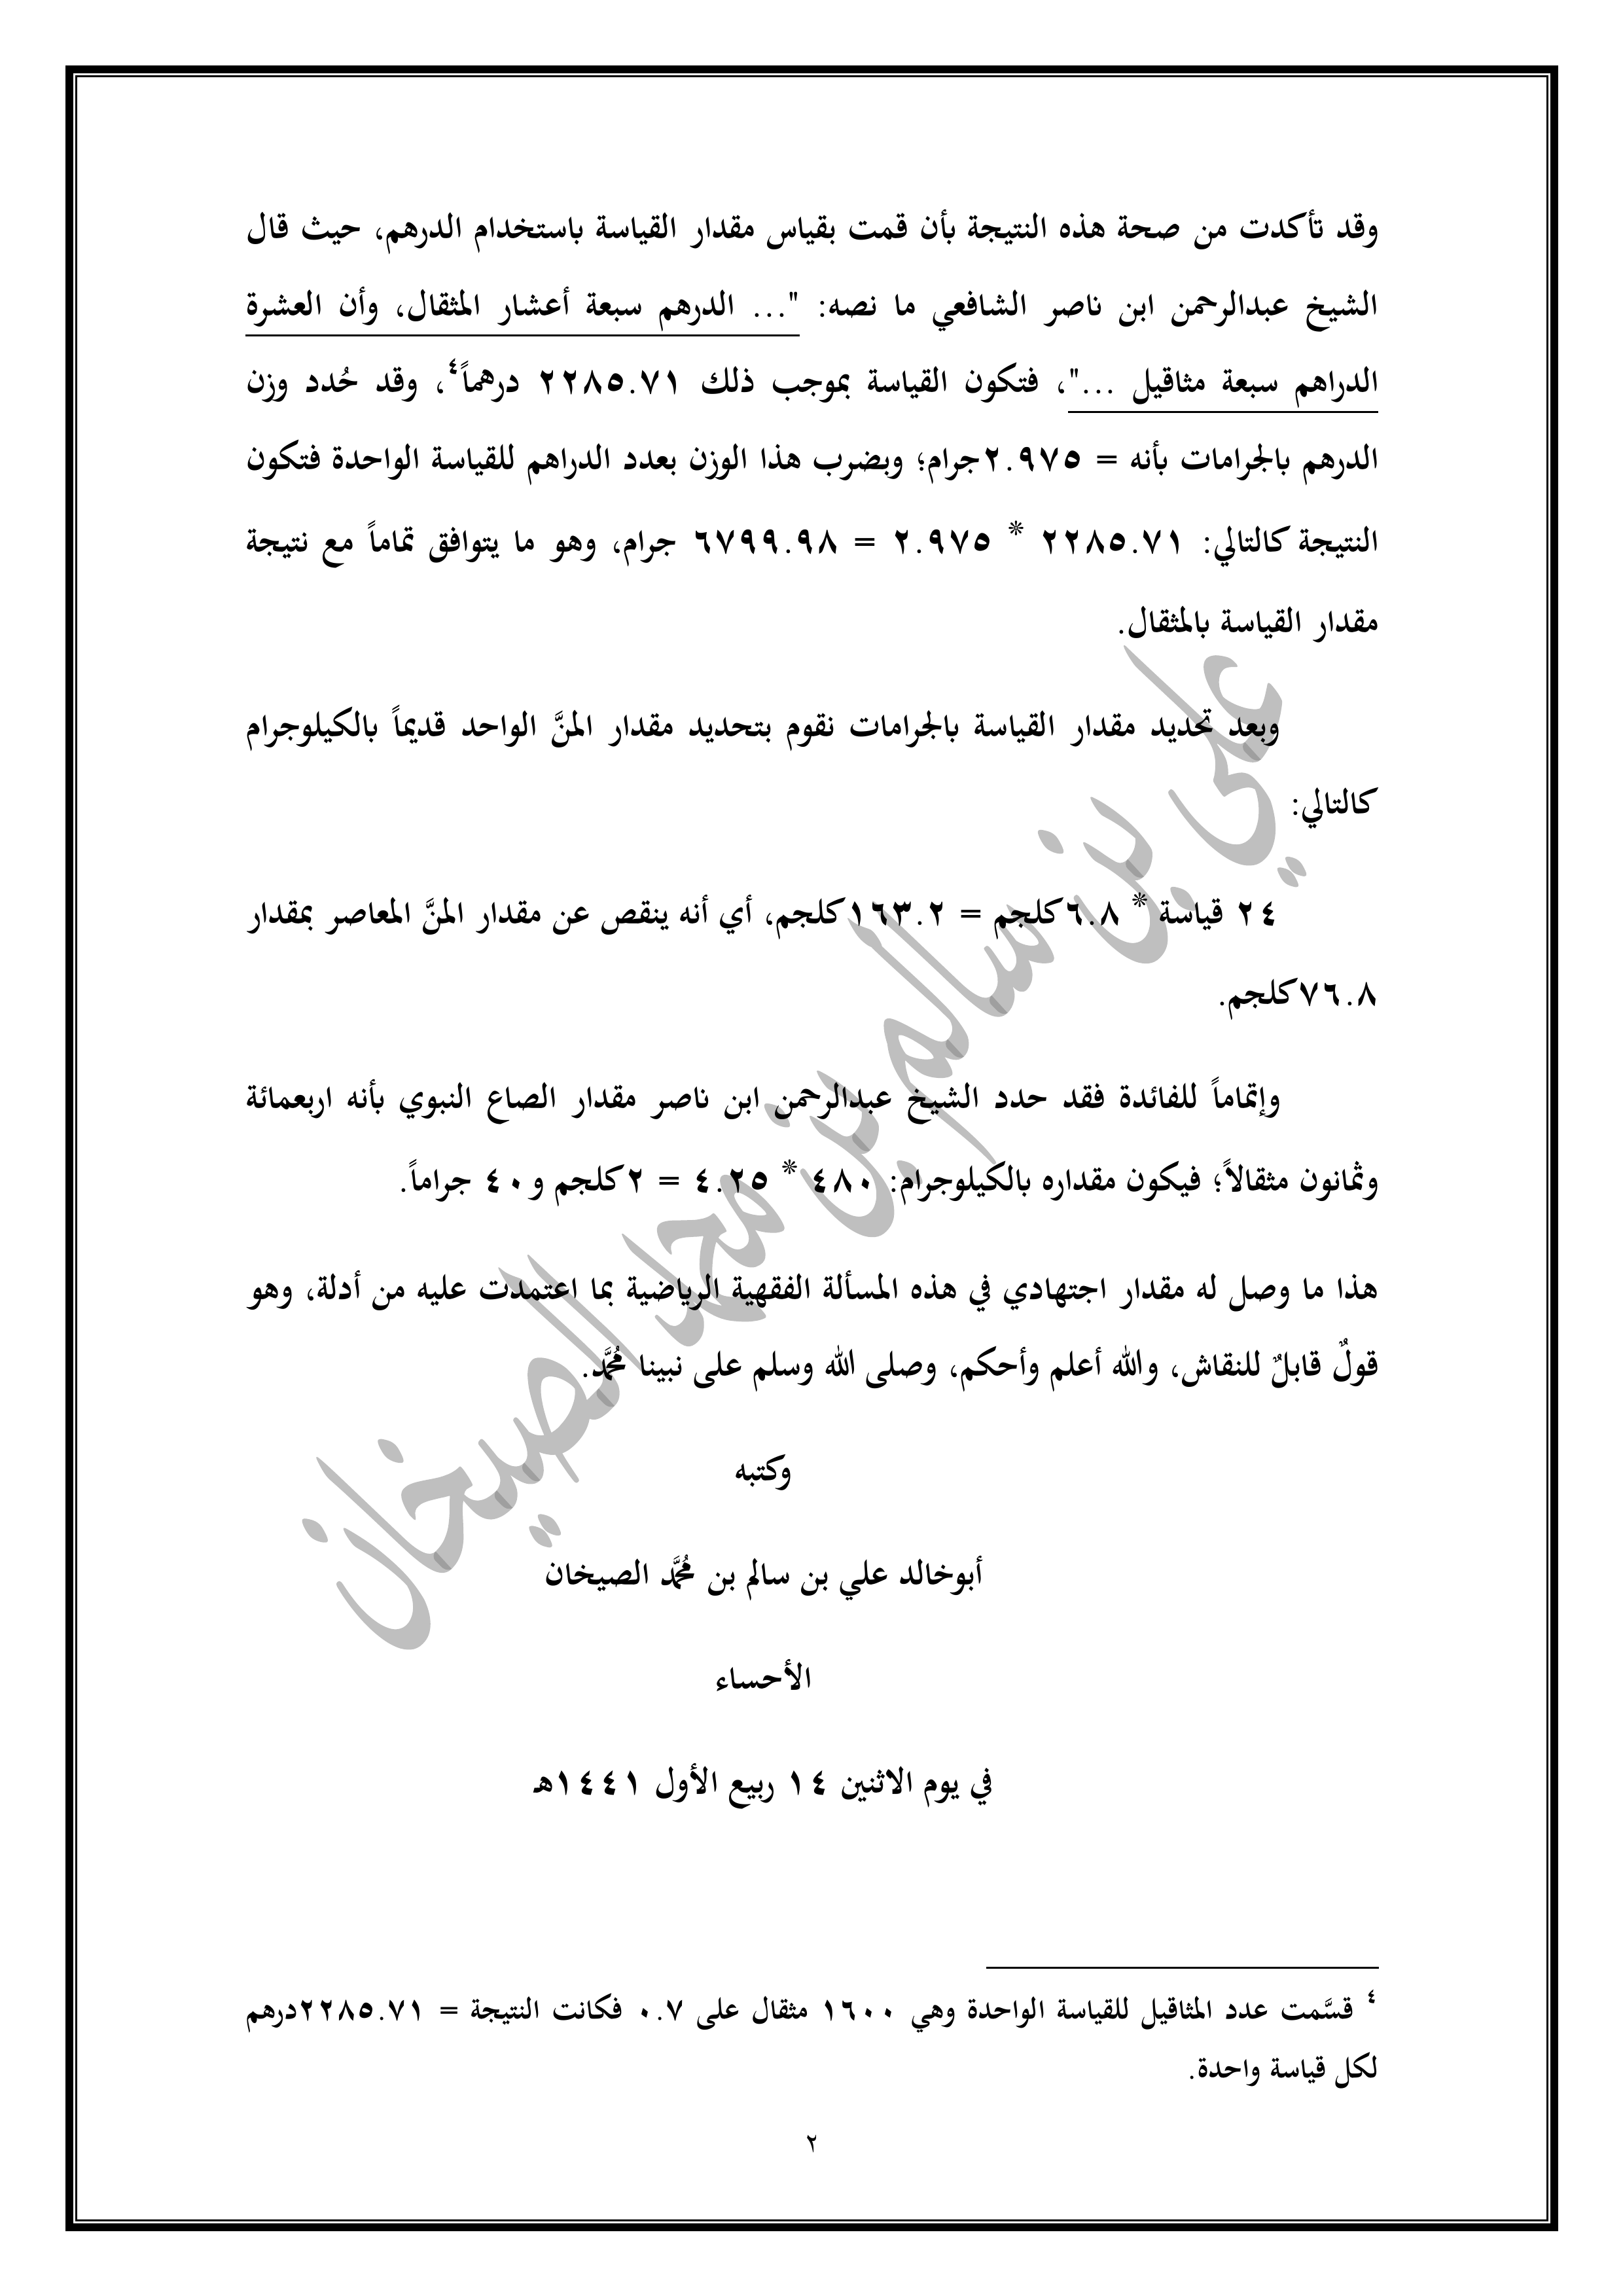 وقد تأكدت من صحة هذه النتيجة بأن قمت بقياس مقدار القياسة باستخدام الدرهم، حيث قال
الشيخ عبدالرحمن ابن ناصر الشافعي ما نصه: "... الدرهم سبعة أعشار المثقال، وأن العشرة
الدراهم سبعة مثاقيل ..."، فتكون القياسة بموجب ذلك ٢٢٨٥.٧١ درهماً٤، وقد حُدد وزن
الدرهم بالجرامات بأنه = ٢.٩٧٥جرام؛ وبضرب هذا الوزن بعدد الدراهم للقياسة الواحدة فتكون
النتيجة كالتالي: ٢٢٨٥.٧١ * ٢.٩٧٥ = ٦٧٩٩.٩٨ جرام، وهو ما يتوافق تماماً مع نتيجة
مقدار القياسة بالمثقال.
وبعد تحديد مقدار القياسة بالجرامات نقوم بتحديد مقدار المنَّ الواحد قديماً بالكيلوجرام
كالتالي:
٢٤ قياسة * ٦.٨كلجم = ١٦٣.٢كلجم، أي أنه ينقص عن مقدار المنَّ المعاصر بمقدار
٧٦.٨كلجم.
وإتماماً للفائدة فقد حدد الشيخ عبدالرحمن ابن ناصر مقدار الصاع النبوي بأنه اربعمائة
وثمانون مثقالاً؛ فيكون مقداره بالكيلوجرام: ٤٨٠ * ٤.٢٥ = ٢كلجم و٤٠ جراماً.
هذا ما وصل له مقدار اجتهادي في هذه المسألة الفقهية الرياضية بما اعتمدت عليه من أدلة، وهو
قولٌ قابلٌ للنقاش، والله أعلم وأحكم، وصلى الله وسلم على نبينا مُحمَّد.
وكتبه
أبوخالد علي بن سالم بن مُحمَّد الصيخان
الأحساء
في يوم الاثنين ١٤ ربيع الأول ١٤٤١هـ
٤ قسَّمت عدد المثاقيل للقياسة الواحدة وهي ١٦٠٠ مثقال على ٠.٧ فكانت النتيجة = ٢٢٨٥.٧١درهم
لكل قياسة واحدة.
٢
علي بن سالم بن محمد الصيخان